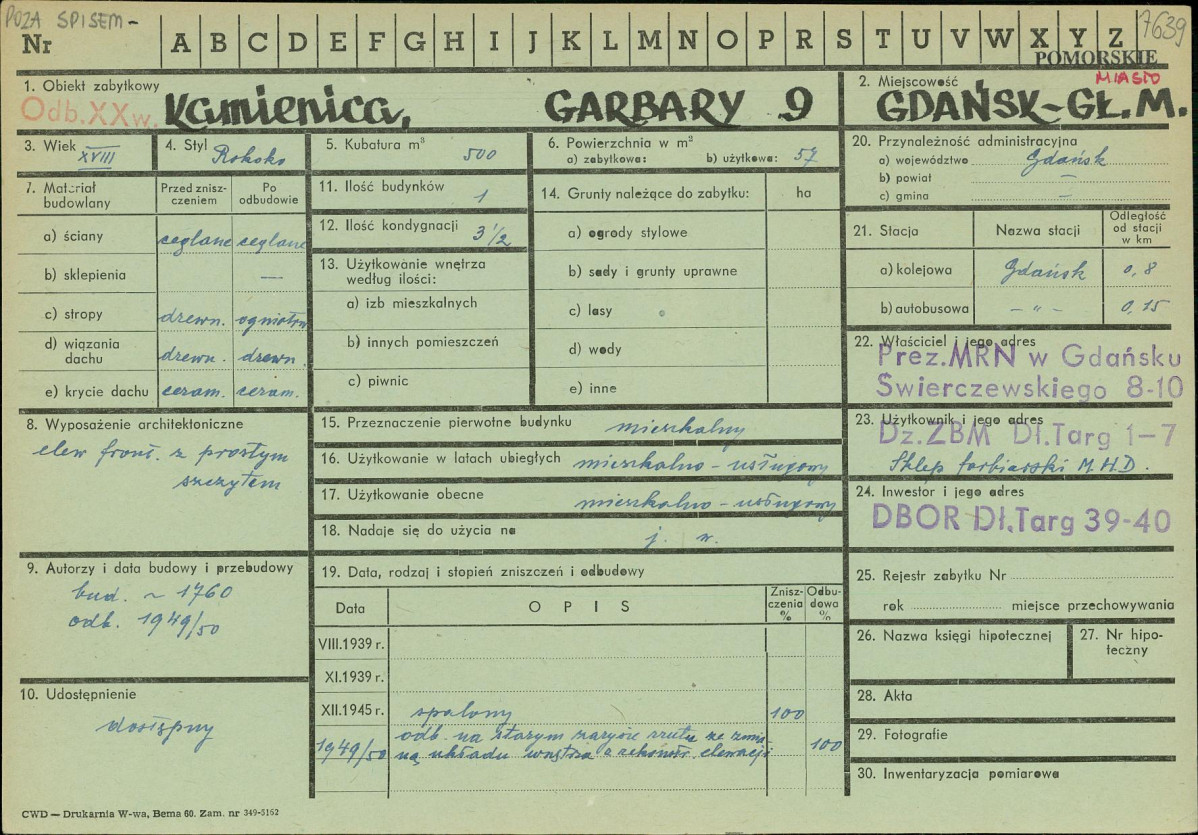 POZA SPISEM -
7639
Nr A B C D E F G H I J K L M N O P R S T U V W X Y Z
POMORSKIE
MIASTO
1. Obiekt zabytkowy
Odb.XXw.
Kamienica, GARBARY 9
2. Miejscowość
GDAŃSK-GŁ.M.
3. Wiek XVIII
4. Styl Rokoko
5. Kubatura m³ 500
6. Powierzchnia w m²
a) zabytkowa: b) użytkowa: 57
20. Przynależność administracyjna
a) województwo Gdańsk
b) powiat —
c) gmina —
7. Materiał budowlany
Przed znisz-
czeniem
Po
odbudowie
a) ściany ceglane ceglane
b) sklepienia —
c) stropy drewn. ogniotrw
d) wiązania
dachu drewn. drewn.
e) krycie dachu ceram. ceram.
11. Ilość budynków 1
12. Ilość kondygnacji 3 1/2
13. Użytkowanie wnętrza
według ilości:
a) izb mieszkalnych
b) innych pomieszczeń
c) piwnic
14. Grunty należące do zabytku: ha
a) ogrody stylowe
b) sady i grunty uprawne
c) lasy
d) wody
e) inne
21. Stacja Nazwa stacji
Odległość
od stacji
w km
a) kolejowa Gdańsk 0,8
b) autobusowa — " — 0,15
22. Właściciel i jego adres
Prez.MRN w Gdańsku
Świerczewskiego 8-10
8. Wyposażenie architektoniczne
elew front. z prostym
szczytem
15. Przeznaczenie pierwotne budynku mieszkalny
16. Użytkowanie w latach ubiegłych mieszkalno - usługowy
17. Użytkowanie obecne mieszkalno - usługowy
18. Nadaje się do użycia na j. w.
23. Użytkownik i jego adres
Dz.ZBM Dł.Targ 1-7
Sklep farbiarski M.H.D.
24. Inwestor i jego adres
DBOR Dł.Targ 39-40
9. Autorzy i data budowy i przebudowy
bud. ~ 1760
odb. 1949/50
19. Data, rodzaj i stopień zniszczeń i odbudowy
Data OPIS
Znisz-
czenia
%
Odbu-
dowa
%
VIII.1939 r.
XI.1939 r.
XII.1945 r. spalony 100
1949/50 odb. na starym zarysie rzutu ze zmia-
ną układu wnętrza o rekonstr. elewacji 100
25. Rejestr zabytku Nr
rok miejsce przechowywania
26. Nazwa księgi hipotecznej
27. Nr hipo-
teczny
10. Udostępnienie
dostępny
28. Akta
29. Fotografie
30. Inwentaryzacja pomiarowa
CWD — Drukarnia W-wa, Bema 60. Zam. nr 349-5162